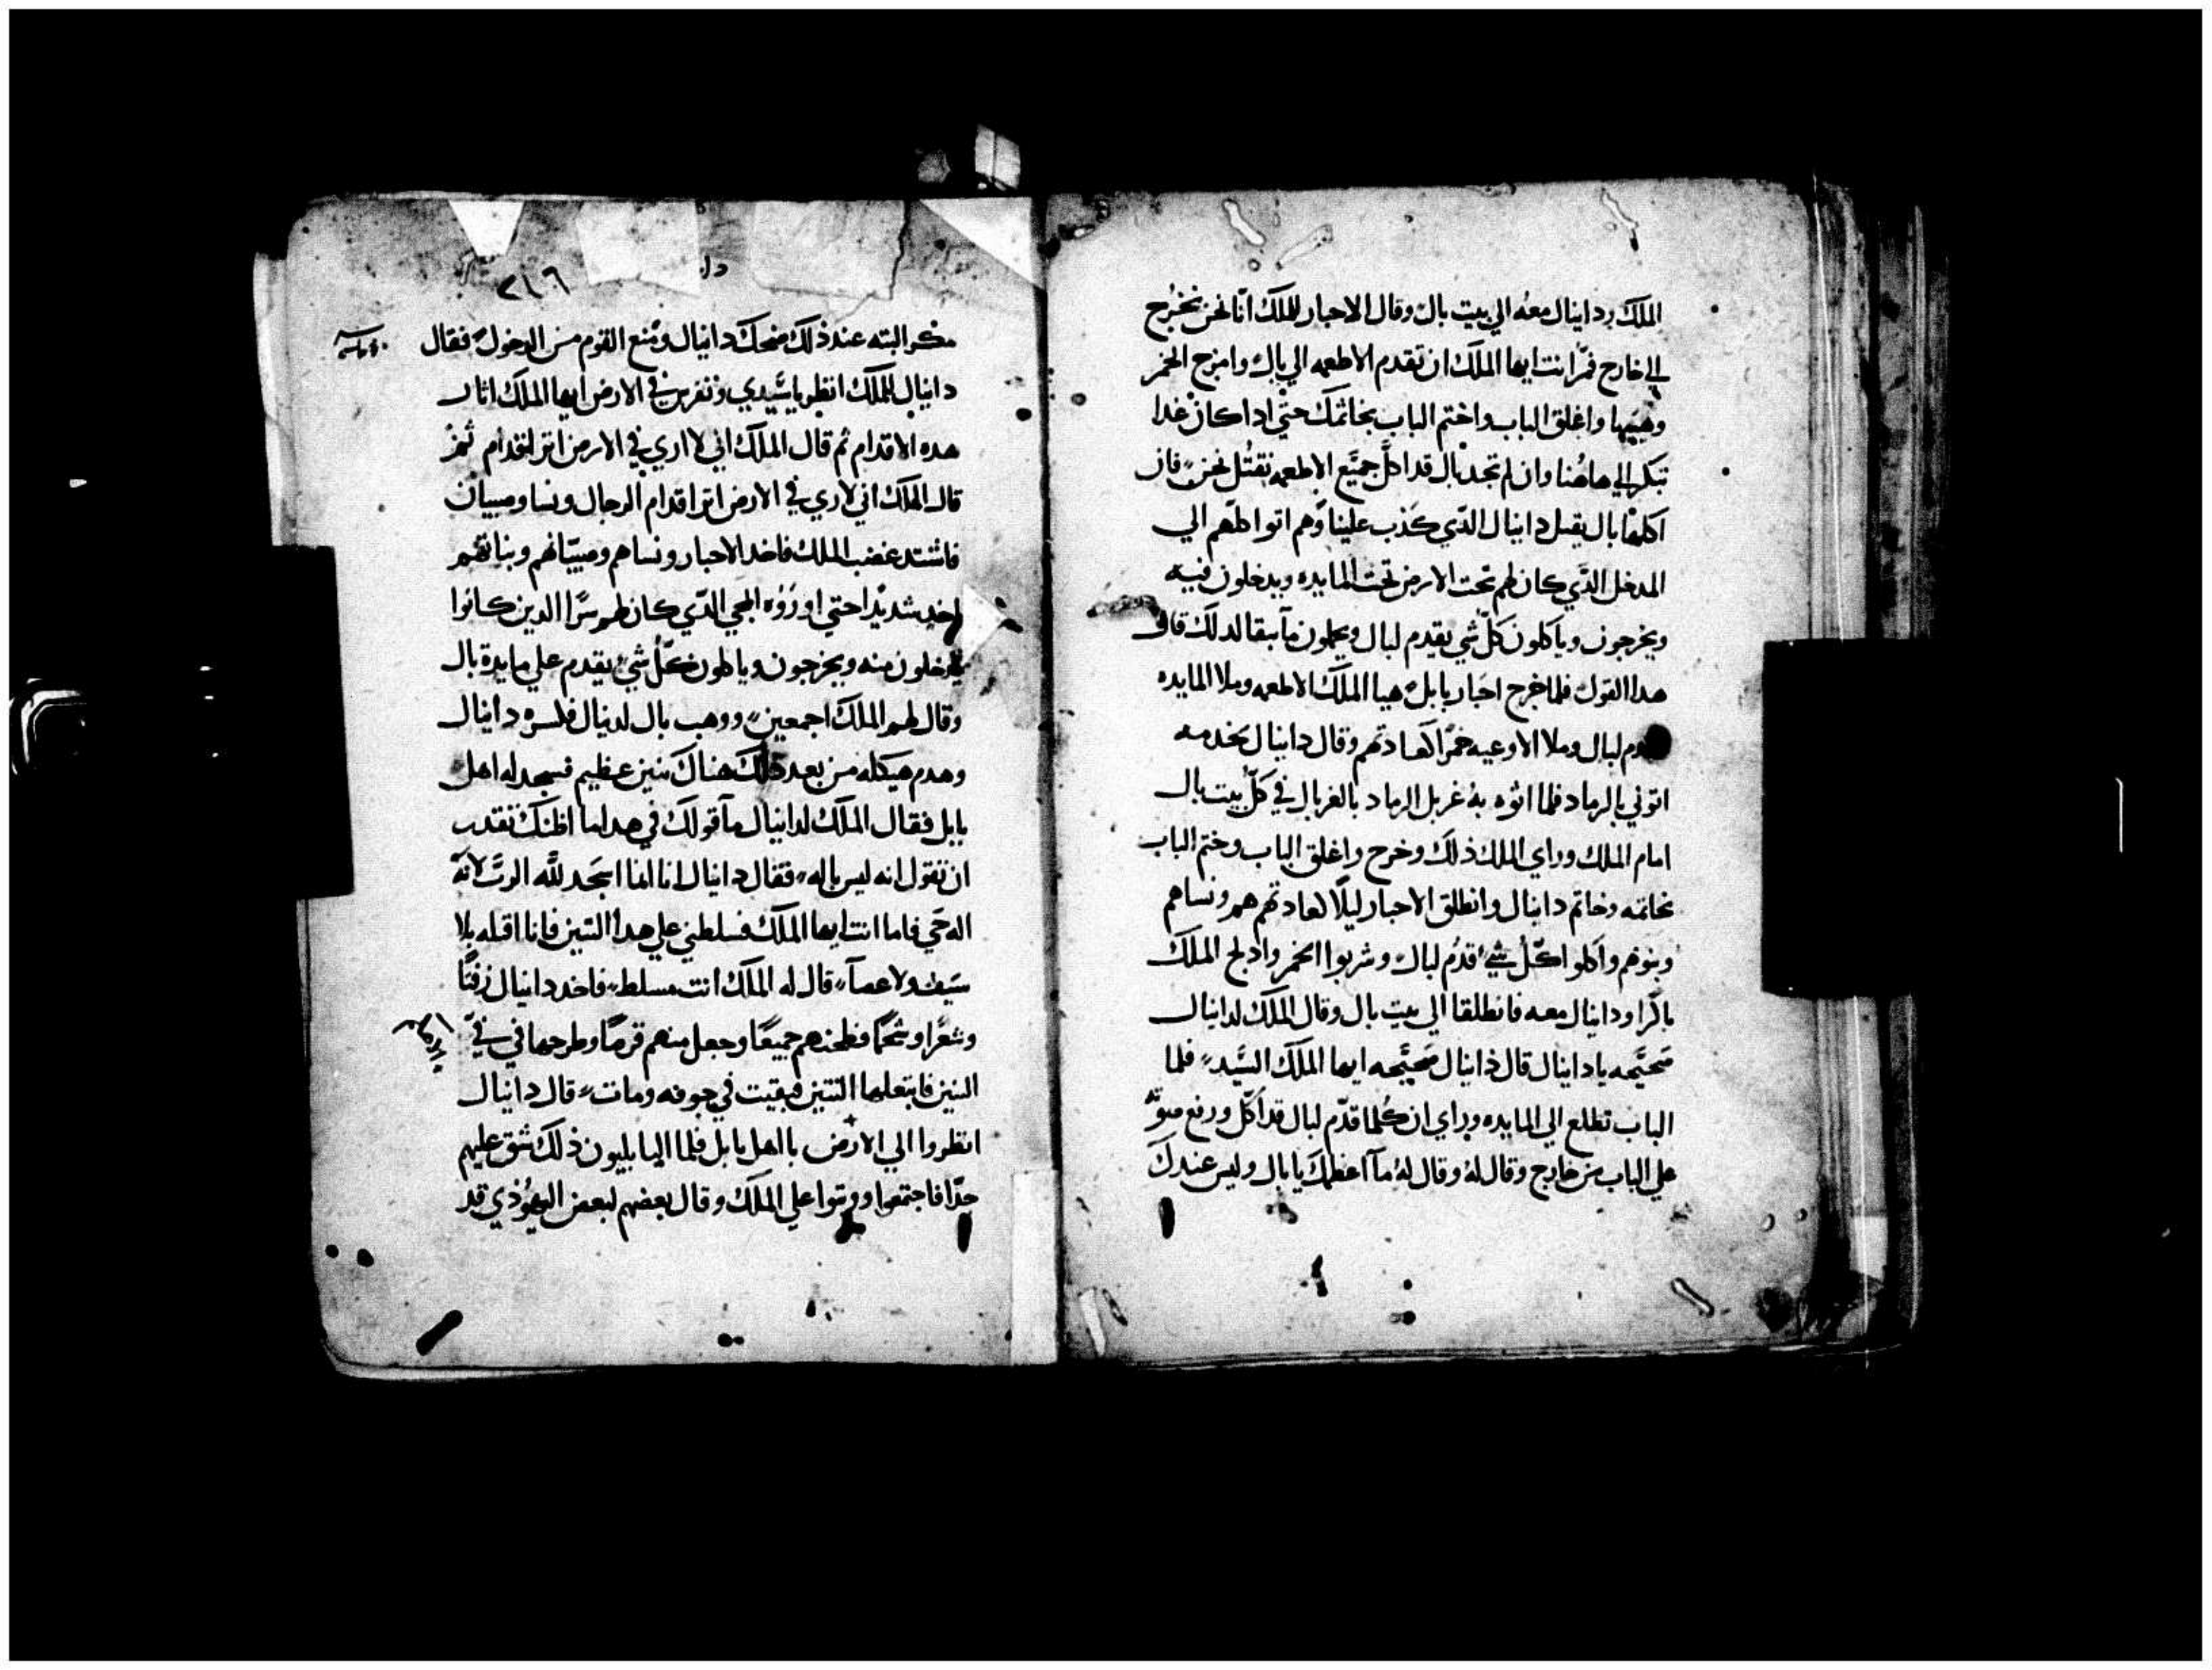 الملك ودانيال معه الي بيت بال وقال الاحبار للملك انّا نحن نخرج
الي خارج فمّر انت ايها الملك ان تقدم الاطعمه الي بال وامزج الخمر
وهيّيها واغلق الباب واختم الباب بخاتمك حتّي ادا كان غدا
تبكر الي هاهنا وان لم تجد بال قد اكل جميع الاطعمه نقتل نحن فان
اكلها بال يقتل دانيال الدّي كذب علينا وهم اتوا كلّهم الي
المدخل الدّي كان لهم تحت الارض تحت المايده ويدخلون فيه
ويخرجون وياكلون كلّ شي يقدم لبال ويحملون ما يبقا لدلك قالو
هدا القول فلما خرج احبار بابل هيا الملك الاطعمه وملا المايده
لبال وملا الاوعيه خمرًا كعادتهم وقال دانيال لخدمه
اتوني بالرماد فلما اتوه به غربل الرماد بالغربال في كلّ بيت بال
امام الملك وراي الملك ذلك وخرج واغلق الباب وختم الباب
بخاتمه وخاتم دانيال وانطلق الاحبار ليلًا كعادتهم هم ونساهم
وبنوهم واكلوا كلّ شي قدّم لبال وشربوا الخمر وادلج الملك
باكرًا ودانيال معه فانطلقا الي بيت بال وقال الملك لدانيال
صحيّحه يا دانيال قال دانيال صحيّحه ايها الملك السيّد فلما
الباب تطلع الي المايده وراي ان كلما قدّم لبال قد اكل ورفع صوته
علي الباب من خارج وقال له وقال له ما اعظمك يا بال وليس عندك
دا
٢١٦
مكر البته عند ذلك ضحك دانيال ومنع القوم من الدخول فقال
دانيال للملك انظر يا سيّدي وتفرس في الارض ايها الملك اثار
هده الاقدام ثم قال الملك اني لا اري في الارض اتر اقدام ثمّ
قال الملك اني لاري في الارض اتر اقدام الرجال ونسا وصبيان
فاشتد غضب الملك فاخد الاحبار ونساهم وصبيّانهم وبناتهم
اخد شديدًا حتي اوروه المجي الدّي كان لهم سرًّا الدين كانوا
يدخلون منه ويخرجون وياكلون كلّ شي يقدم علي مايدة بال
وقال لهم الملك اجمعين ووهب بال لدنيال فكسره دانيال
وهدم هيكله من بعد ذلك هناك تنين عظيم فسجد له اهل
بابل فقال الملك لدانيال ما قولك في هدا ما اظنك تقتدر
ان تقول انه ليس باله فقال دانيال انا انما اسجد للّه الربّ لانّه
اله حَي فاما انت ايها الملك فسلطني علي هدا التنين فانا اقتله بلا
سَيف ولا عصاً قال له الملك انت مسلط فاخد دانيال زفتًا
وشعرًا وشحمًا فطحنهم جميعًا وجعل منهم قرصًا وطرحها في فيّ
التنين فابتعلها التنين فبقيت في جوفه ومات قال دانيال
انظروا الي الارض يا اهل بابل فلما البابليون ذلك شق عليهم
جدًّا فاجتمعوا ووتبوا علي الملك وقال بعضهم لبعض اليهوذي قد